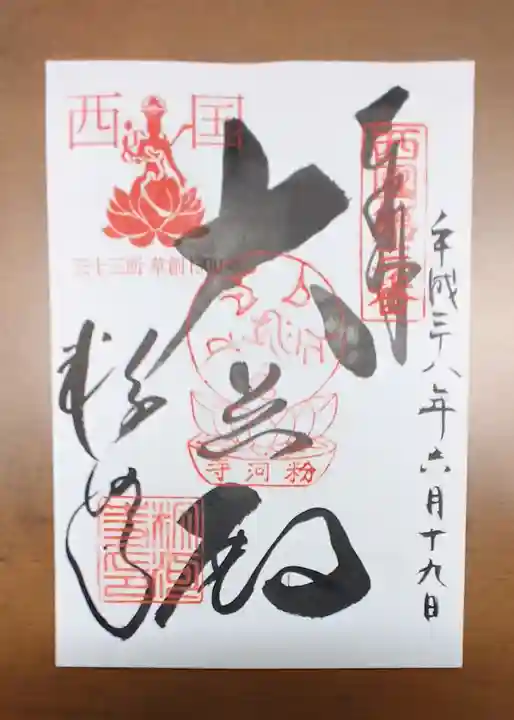 平成二十八年六月十九日
奉拝
西國第三番
大悲殿
粉河寺
西国
三十三所 草創1300年
粉河寺